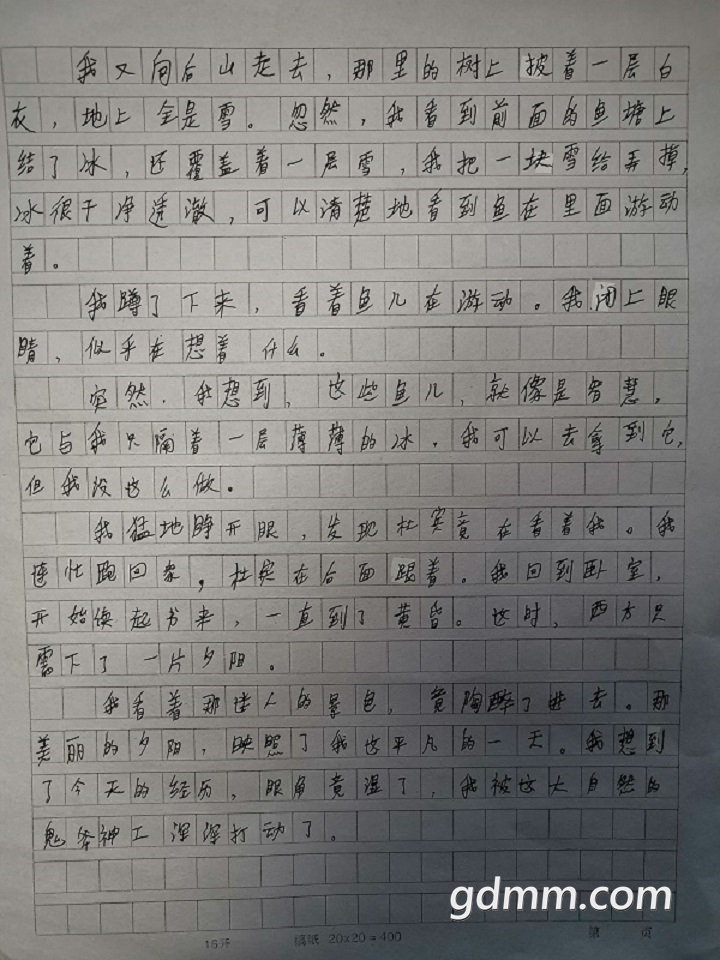 我又向后山走去，那里的树上披着一层白
衣，地上全是雪。忽然，我看到前面的鱼塘上
结了冰，还覆盖着一层雪，我把一块雪给弄掉，
冰很干净透澈，可以清楚地看到鱼在里面游动
着。
我蹲了下来，看着鱼儿在游动。我闭上眼
睛，似乎在想着什么。
突然，我想到，这些鱼儿，就像是智慧，
它与我只隔着一层薄薄的冰，我可以去拿到它，
但我没这么做。
我猛地睁开眼，发现杜宾竟在看着我。我
连忙跑回家，杜宾在后面跟着。我回到卧室，
开始读起书来，一直到了黄昏。这时，西方只
露下了一片夕阳。
我看着那迷人的景色，竟陶醉了进去。那
美丽的夕阳，映照了我这平凡的一天。我想到
了今天的经历，眼角竟湿了，我被这大自然的
鬼斧神工深深打动了。
gdmm.com
16开 稿纸 20×20=400 第 页